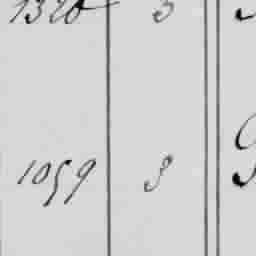 1320 3
1059 3